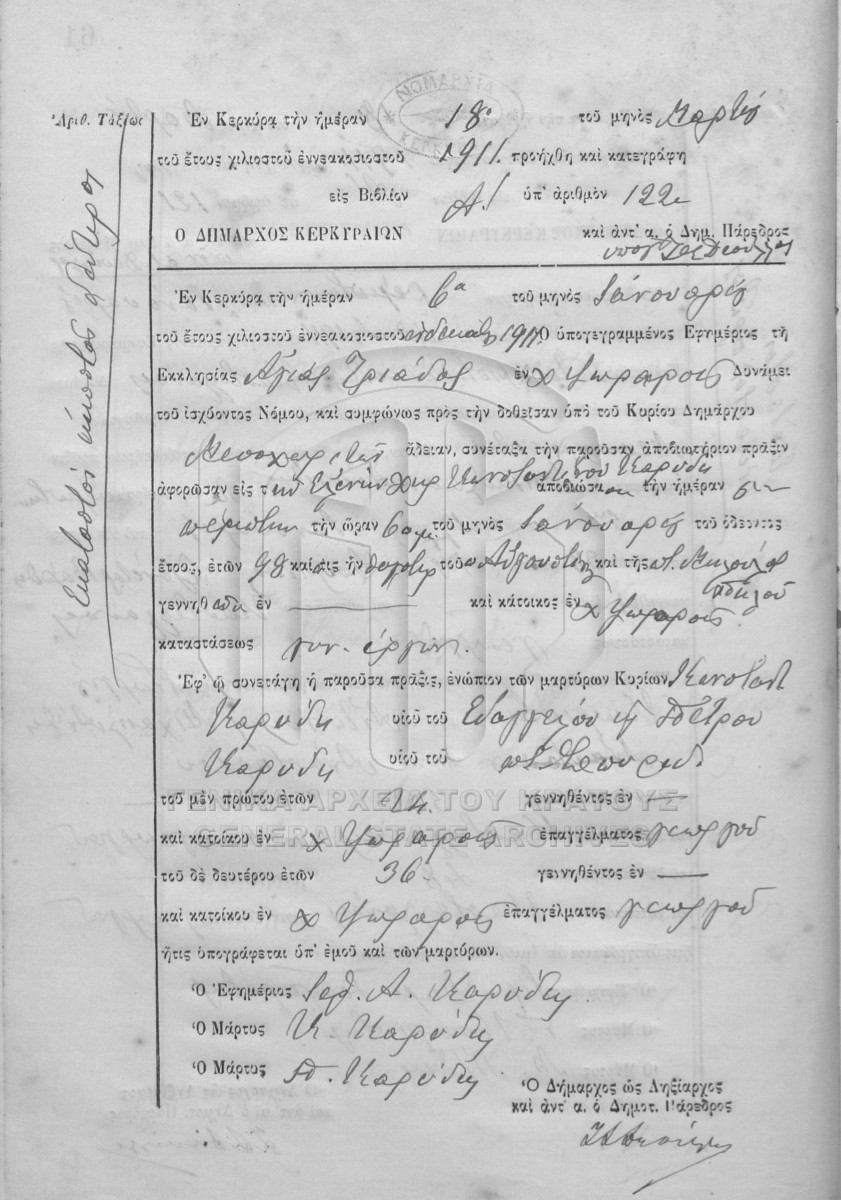 ΝΟΜΑΡΧΙΑ
Ἀριθ. Τάξεως
Ἑκατοστὸς εἰκοστὸς δεύτερος
Ἐν Κερκύρᾳ τὴν ἡμέραν 18 τοῦ μηνὸς Μαρτίου
τοῦ ἔτους χιλιοστοῦ ἐννεακοσιοστοῦ 1911. προήχθη καὶ κατεγράφη
εἰς Βιβλίον Α! ὑπ' ἀριθμὸν 122
Ο ΔΗΜΑΡΧΟΣ ΚΕΡΚΥΡΑΙΩΝ καὶ ἀντ' α. ὁ Δημ. Πάρεδρος
Ἐν Κερκύρᾳ τὴν ἡμέραν 6α τοῦ μηνὸς Ἰανουαρίου
τοῦ ἔτους χιλιοστοῦ ἐννεακοσιοστοῦ ἑνδεκάτου 1911 Ὁ ὑπογεγραμμένος Ἐφημέριος τῆς
Ἐκκλησίας Ἁγίας Τριάδος ἐν χ Ψωραροῖς Δυνάμει
τοῦ ἰσχύοντος Νόμου, καὶ συμφώνως πρὸς τὴν δοθεῖσαν ὑπὸ τοῦ Κυρίου Δημάρχου
Μεσοχωριτῶν ἄδειαν, συνέταξα τὴν παροῦσαν ἀποβιωτήριον πρᾶξιν
ἀφορῶσαν εἰς τὴν Ἑλένην χηρ Κωνσταντίνου Καρύδη ἀποβιώσασαν τὴν ἡμέραν
πέμπτην τὴν ὥραν 6 πμ τοῦ μηνὸς Ἰανουαρίου τοῦ ὁδεύοντος
ἔτους, ἐτῶν 98 καὶ εἰς τὴν θυγατέρα τοῦ Αὐγουστῆ καὶ τῆς
γεννηθεῖσα ἐν — καὶ κάτοικος ἐν χ Ψωραροῖς
καταστάσεως
Ἐφ' ᾧ συνετάγη ἡ παροῦσα πρᾶξις, ἐνώπιον τῶν μαρτύρων Κυρίων Κωνσταντ
Καρύδη υἱοῦ τοῦ Εὐαγγέλου κ Πέτρου
Καρύδη υἱοῦ τοῦ Σπυρίδ
τοῦ μὲν πρώτου ἐτῶν 24. γεννηθέντος ἐν —
ΓΕΝΙΚΑ ΑΡΧΕΙΑ ΤΟΥ ΚΡΑΤΟΥΣ
καὶ κατοίκου ἐν χ Ψωραροῖς ἐπαγγέλματος γεωργοῦ
GENERAL STATE ARCHIVES
τοῦ δὲ δευτέρου ἐτῶν 36. γεννηθέντος ἐν —
καὶ κατοίκου ἐν χ Ψωραροῖς ἐπαγγέλματος γεωργοῦ
ἥτις ὑπογράφεται ὑπ' ἐμοῦ καὶ τῶν μαρτύρων.
Ὁ Ἐφημέριος Ἱερ. Α. Καρύδης
Ὁ Μάρτυς Κ. Καρύδης
Ὁ Μάρτυς Π. Καρύδης
Ὁ Δήμαρχος ὡς Ληξίαρχος
καὶ ἀντ' α. ὁ Δημοτ. Πάρεδρος